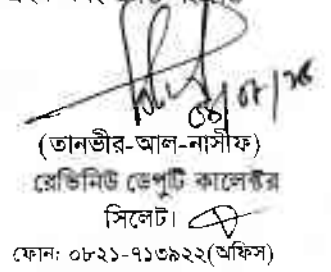 (তানভীর-আল-নাসীফ)
রেভিনিউ ডেপুটি কালেক্টর
সিলেট।
ফোন: ০৮২১-৭১৩৯২২(অফিস)